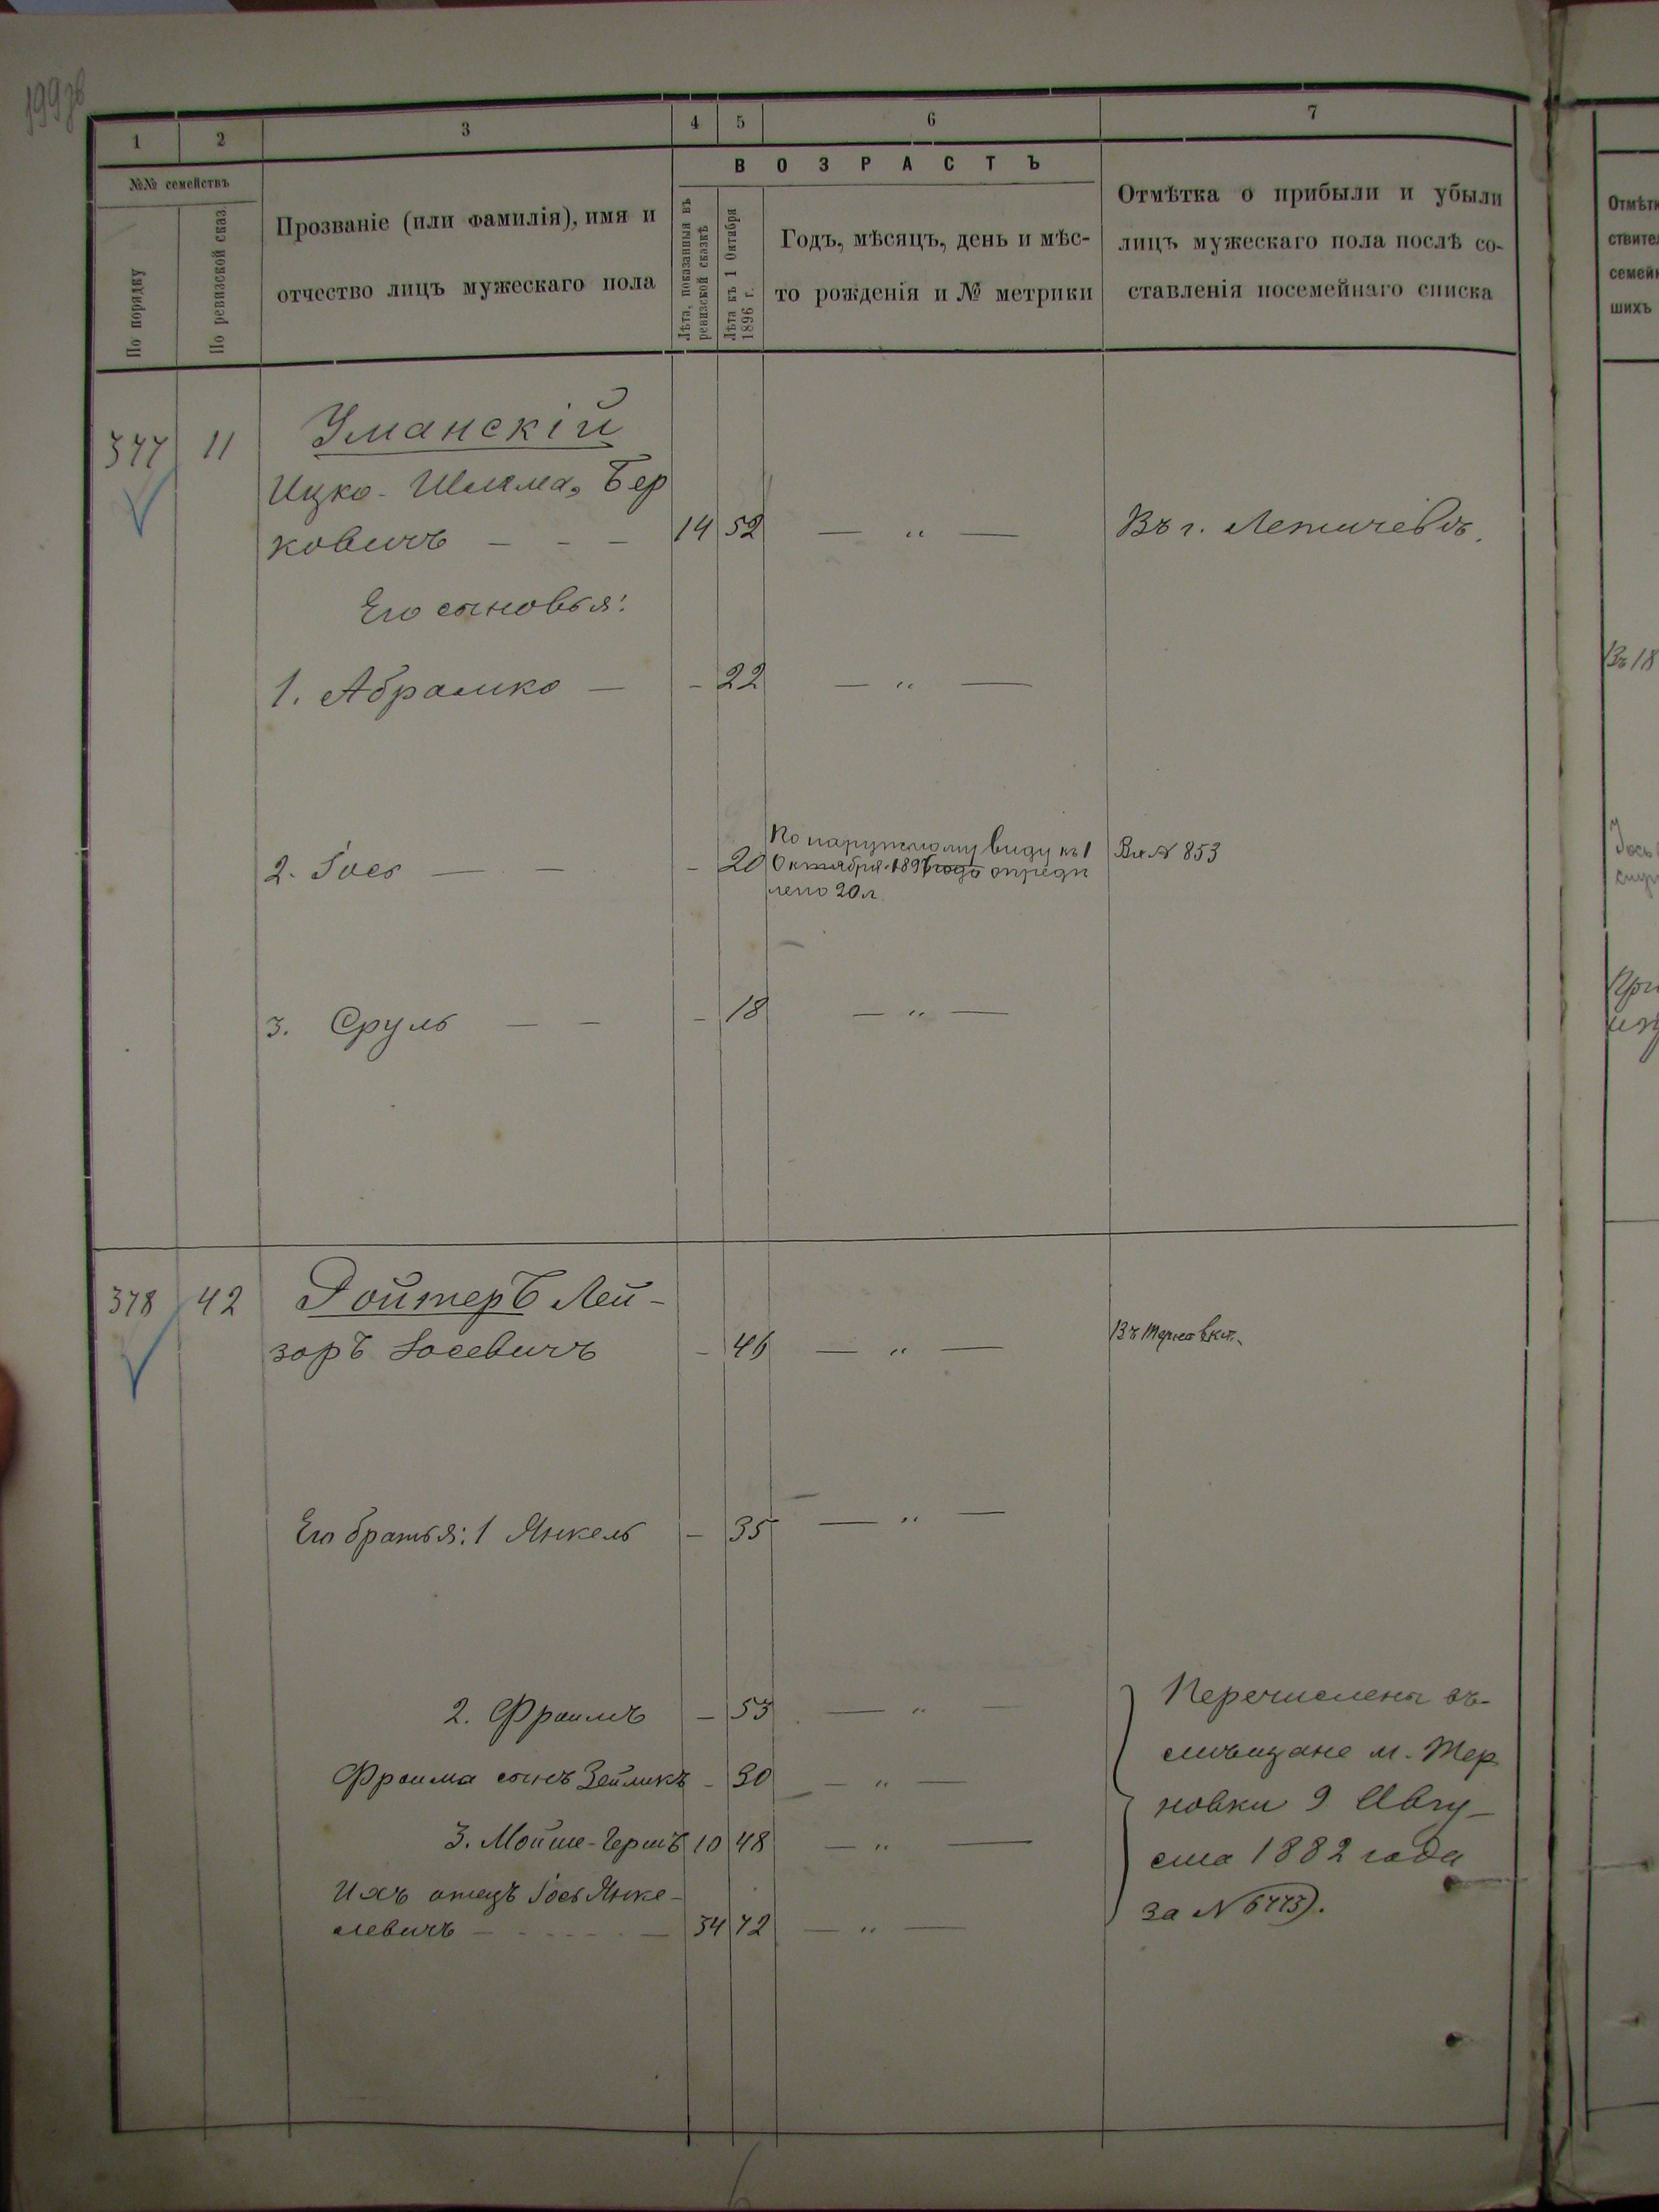 199об
1 2 3 4 5 6 7
№№ семействъ
По порядку
По ревизской сказ.
Прозваніе (или фамилія), имя и
отчество лицъ мужескаго пола
ВОЗРАСТЪ
Лѣта, показанныя въ
ревизской сказкѣ
Лѣта къ 1 Октября
1896 г.
Годъ, мѣсяцъ, день и мѣс-
то рожденія и № метрики
Отмѣтка о прибыли и убыли
лицъ мужескаго пола послѣ со-
ставленія посемейнаго списка
377 11 Уманскій
Ицко-Шлема, Бер
ковичъ — — — 14 52 — „ — Въ г. Летичевѣ.
Его сыновья:
1. Абрамко — - 22 — „ —
2. Іось — — - 20 По наружному виду къ 1
Октября 1897 года опредѣ
лено 20 л.
Вх № 853
3. Сруль — — - 18 — „ —
378 42 Ройтеръ Лей-
зоръ Іосевичъ - 46 — „ — Въ Терновкѣ.
Его братья: 1 Янкель - 35 — „ —
2. Фроимъ - 53 — „ —
Фроима сынъ Зейликъ - 30 — „ —
3. Мойше-Гершъ 10 48 — „ —
Ихъ отецъ Іось Янке-
левичъ — 34 72 — „ —
Перечислены въ
мѣщане м. Тер
новки 9 Авгу-
ста 1882 года
за № 6773).
Отмѣтк
ствите
семей
шихъ
Въ 18
Іось
При